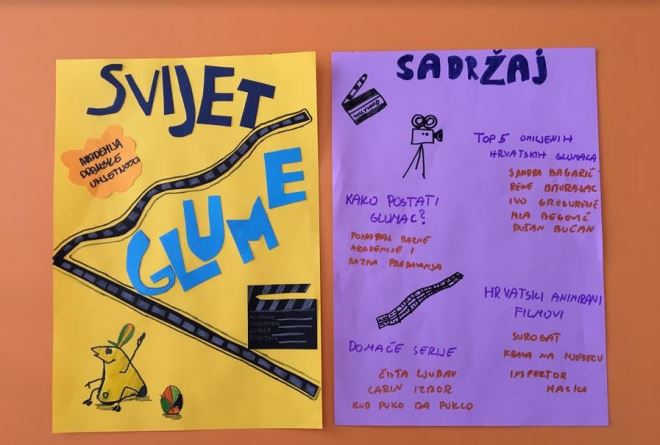 SVIJET
GLUME
AKADEMIJA
DRAMSKE
UMJETNOSTI
SADRŽAJ
TOP 5 OMILJENIH
HRVATSKIH GLUMACA
SANDRA BAGARIĆ
RENE
IVO GREGUREVIĆ
MIA BEGOVIĆ
DUŠAN BUĆAN
KAKO POSTATI
GLUMAC?
POHAĐAJ RAZNE
AKADEMIJE I
RAZNA PREDAVANJA
HRVATSKI ANIMIRANI
FILMOVI
SUROGAT
KRAVA NA MJESECU
INSPEKTOR
MASKA
DOMAĆE SERIJE
ČISTA LJUBAV
LARIN IZBOR
KUD PUKO DA PUKLO